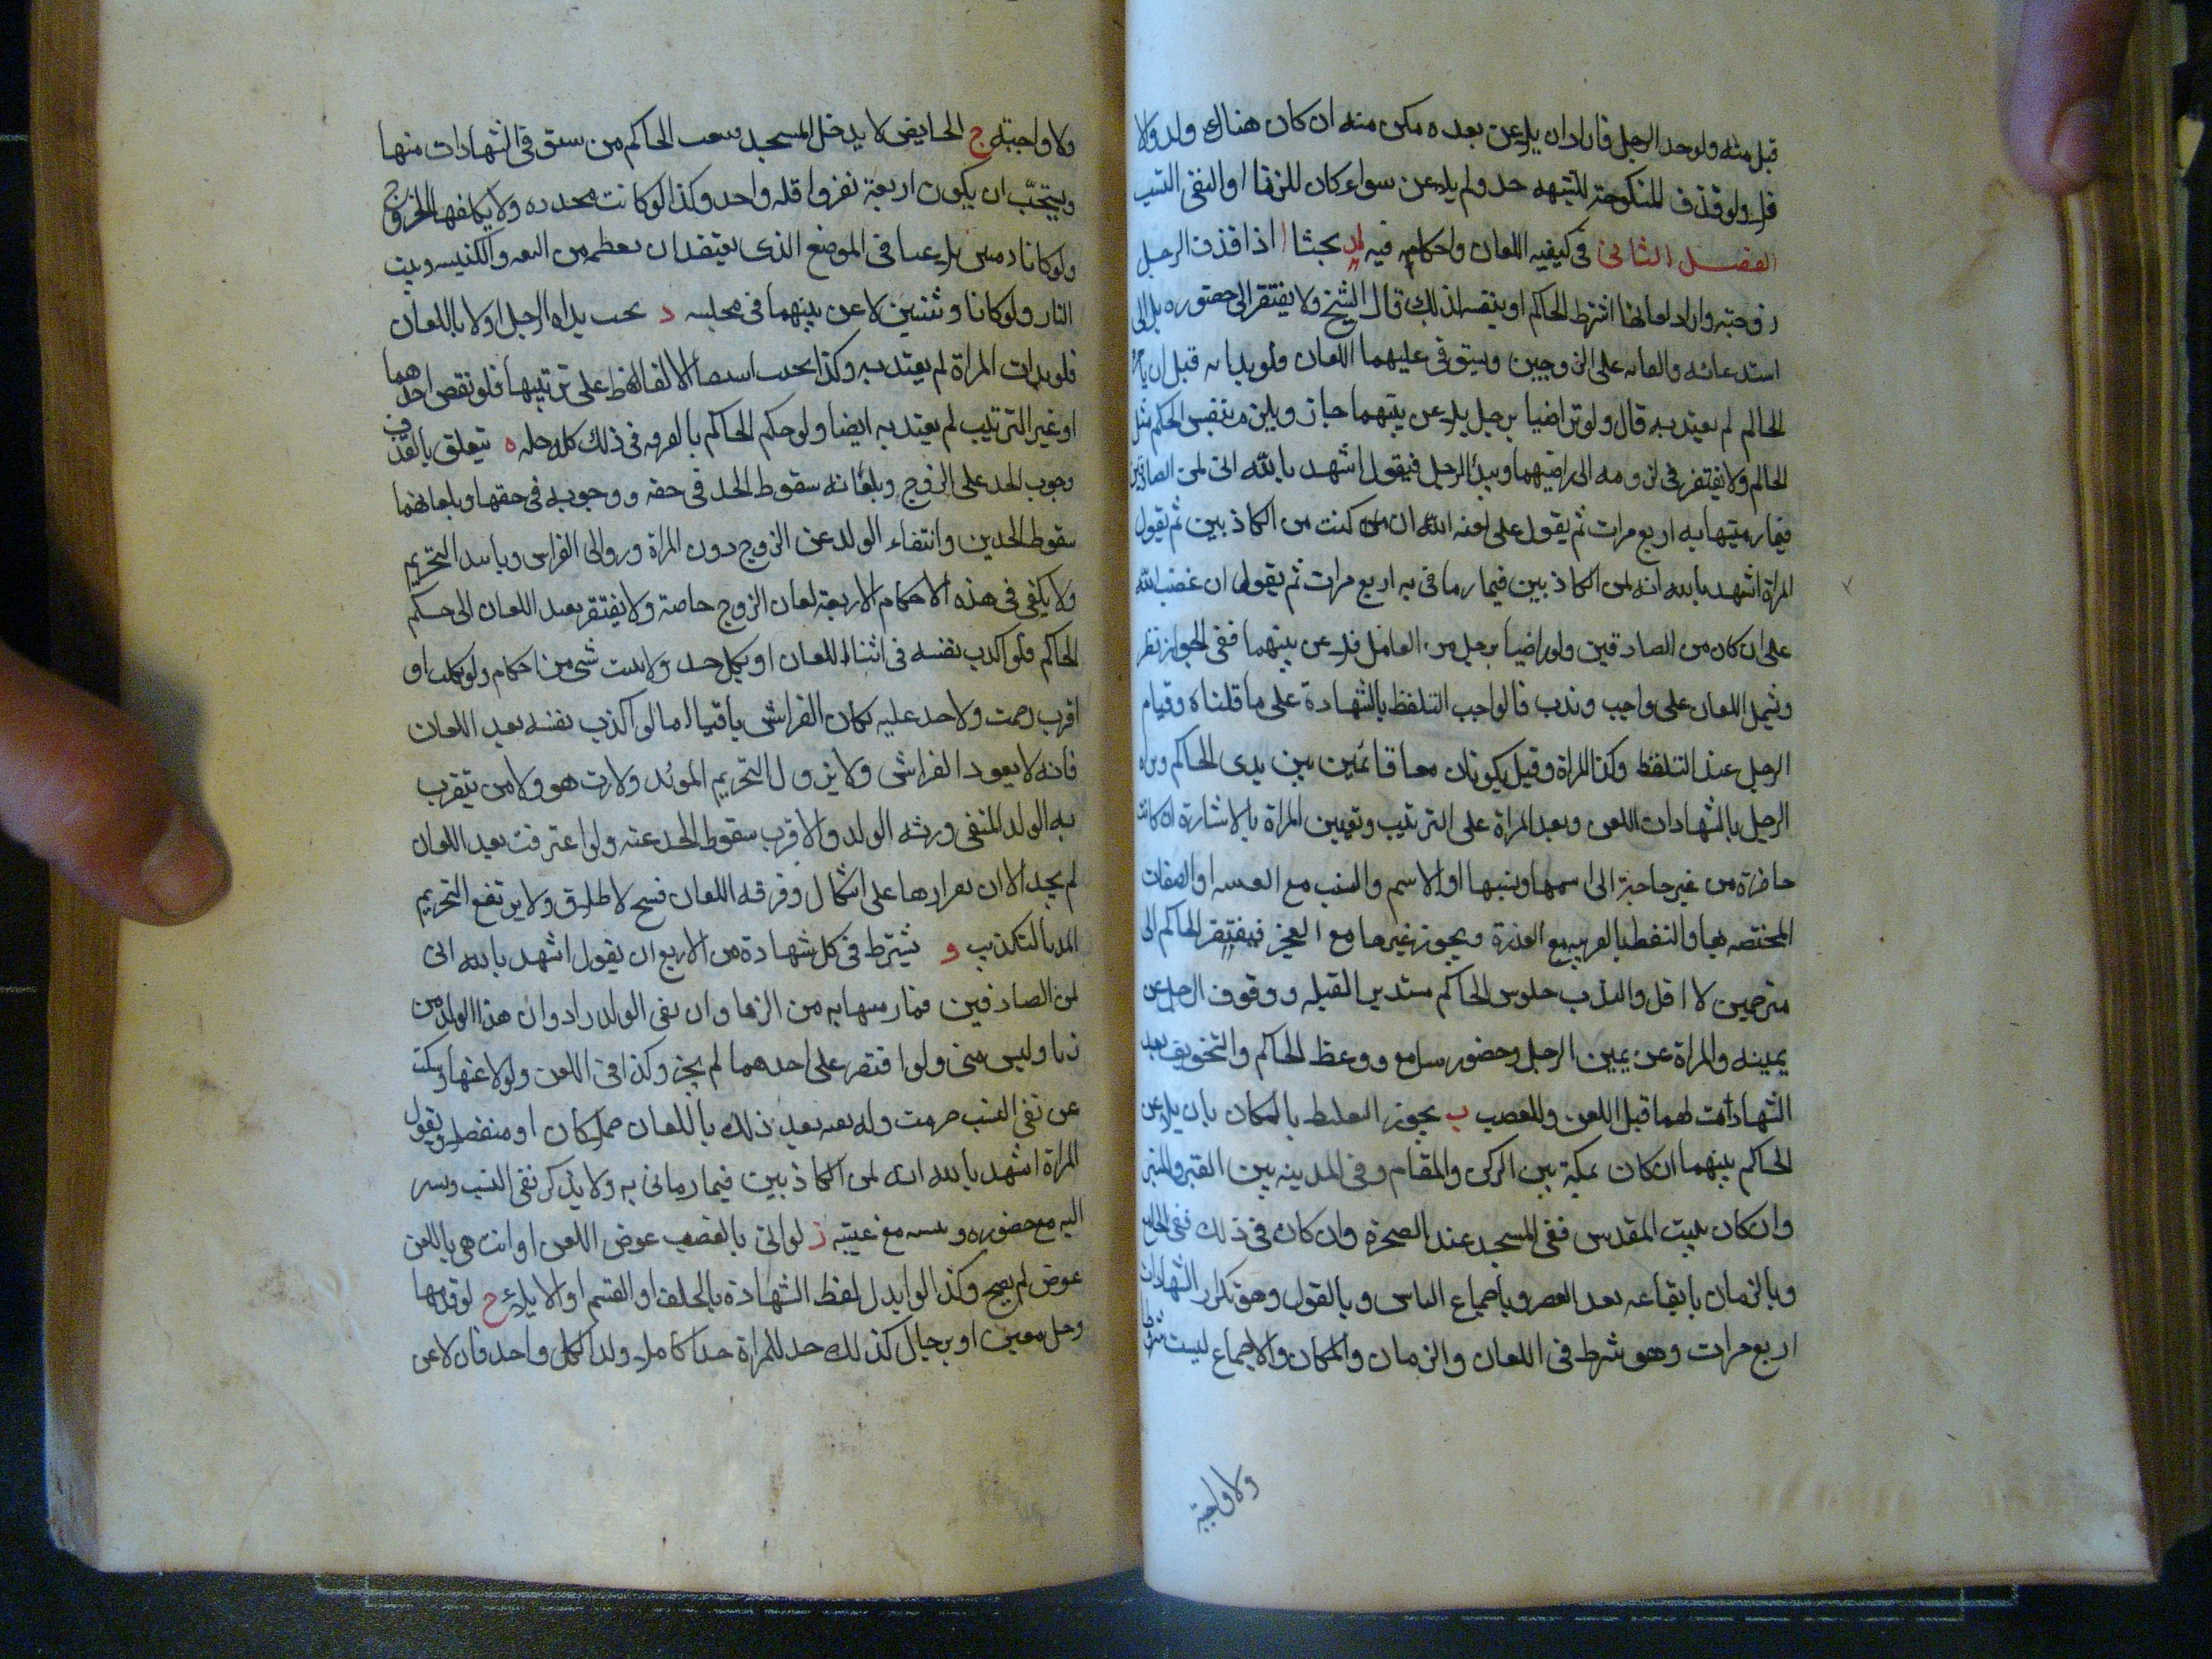 قبل منه ولو حد الرجل فاراد ان يلاعن بعده مكن منه ان كان هناك ولد والا
فلا ولو قذف المنكوحة للشبهه حد ولم يلاعن سواء كان للزنا او النفى النسب
الفصل الثانى فى كيفيه اللعان واحكامه فيه يد بحثا ا اذا قذف الرجل
زوجته واراد لعانها اشترط الحاكم او ينصبه لذلك قال الشيخ ولا يفتقر الى حضوره بل الى
استدعائه والقائه على الزوجين ويستوفى عليهما اللعان ولو بدا به قبل ان
الحاكم لم يعتد به قال ولو تراضيا برجل يلاعن بينهما جاز ويلزم بنفس الحكم مثل
الحاكم ولا يفتقر فى لزومه الى راضيهما ويبدأ الرجل فيقول اشهد بالله انى لمن الصادقين
فيما رميتها به اربع مرات ثم يقول على لعنه الله ان كنت من الكاذبين ثم يقول
المراة اشهد بالله انه لمن الكاذبين فيما رمانى به اربع مرات ثم يقول ان غضب الله
على ان كان من الصادقين ولو راضيا برجل من العامل فلاعن بينهما ففى الجواز نظر
ويشمل اللعان على واجب وندب فالواجب التلفظ بالشهادة على ما قلناه وقيام
الرجل عند التلفظ وكذا المراة وقيل يكونان معا قائمين بين يدى الحاكم
الرجل بالشهادات اللعن وبعد المراة على الترتيب وتعيين المراة بالاشارة ان كانت
حاضرة من غير حاجة الى اسمها ونسبها او الاسم والنسب مع الغيبه او الصفات
المختصه بها والنفط بالعربيه مع القدرة ويجوز بغيرها مع العجز فيفتقر الحاكم الى
مترجمين لا اقل والندب جلوس الحاكم مستدبر القبله ووقوف الرجل عن
يمينه والمراة عن يمين الرجل وحضور سامع ووعظ الحاكم والتخويف بعد
الشهادات لهما قبل اللعن والغصب ب يجوز التغليظ بالمكان بان يلاعن
الحاكم بينهما ان كان بمكة بين الركن والمقام وفى المدينه بين القبر والمنبر
وان كان ببيت المقدس ففى المسجد عند الصخرة وان كان فى ذلك ففى الجامع
وبالزمان بايقاعه بعد العصر وباجماع الناس وبالقول وهو تكرار الشهادات
اربع مرات وهو شرط فى اللعان والزمان والمكان والاجماع ليست شرطا
ولا واجبة
ولا واجبة ج الحايض لا يدخل المسجد بل يبعث الحاكم من يستوفى الشهادات منها
ويستحب ان يكون اربعة نفر واقله واحد وكذا لو كانت مخدره ولا يكلفها الخروج
ولو كانا ذميين تلاعنا فى الموضع الذى يعتقدان تعظيمه من البيعه والكنيسه وبيت
النار ولو كانا وثنيين لاعن بينهما فى مجلسه د يجب بداه الرجل اولا باللعان
فلو بدات المراة لم يعتد به وكذا يجب الالفاظ على ترتيبها فلو نقص احدهما
او غير الترتيب لم يعتد به ايضا ولو حكم الحاكم بالفرقه فى ذلك كله ه يتعلق بالقذف
وجوب الحد على الزوج وبلعانه سقوط الحد فى حقه ووجوبه فى حقها وبلعانهما
سقوط الحدين وانتفاء الولد عن الزوج دون المراة وزوال الفراش وتابيد التحريم
ولا يكفى فى هذه الاحكام الاربعة لعان الزوج خاصة ولا يفتقر بعد اللعان الى حكم
الحاكم فلو اكذب نفسه فى اثناء اللعان او نكل حد ولا يثبت شى من احكام ولو نكلت او
اقرت رجمت ولا حد عليه وكان الفراش باقيا اما لو اكذب نفسه بعد اللعان
فانه لا يعود الفراش ولا يزول التحريم المؤبد ولا يرث هو ولا من يتقرب
به الولد المنفى ورثه الولد والاقرب سقوط الحد عنه ولو اعترفت بعد اللعان
لم يحد الا ان تقر اربعا على اشكال وفرقه اللعان فسخ لا طلاق ولا يرتفع التحريم
المؤبد بالتكذيب و يشترط فى كل شهادة من الاربع ان يقول اشهد بالله انى
لمن الصادقين فيما رميتها به من الزنا وان نفى الولد زاد وان هذا الولد من
زنا وليس منى ولو اقتصر على احدهما لم يجز وكذا فى اللعن ولو لاعنها وسكت
عن نفى النسب حرمت وله نفيه بعد ذلك باللعان حملا كان او منفصلا ويقول
المراة اشهد بالله انه لمن الكاذبين فيما رمانى به ولا يذكر نفى النسب ويشير
اليه مع حضوره وتسميه مع غيبته ز لو اتى بالغضب عوض اللعن او اتت هى باللعن
عوض لم يصح وكذا لو ابدل لفظ الشهادة بالحلف او القسم او الايلاء ح لو قذفها
رجل معين او برجال كذلك حد للمراة حدا كاملا ولذا لكل واحد فان لاعن